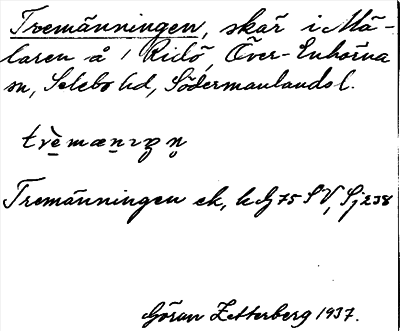 Tremänningen, skär i Mä-
laren å 1 Ridö, Över-Enhörna
sn, Selebo hd, Södermanlands l.
Tremänningen ek,
Göran Zetterberg 1937.